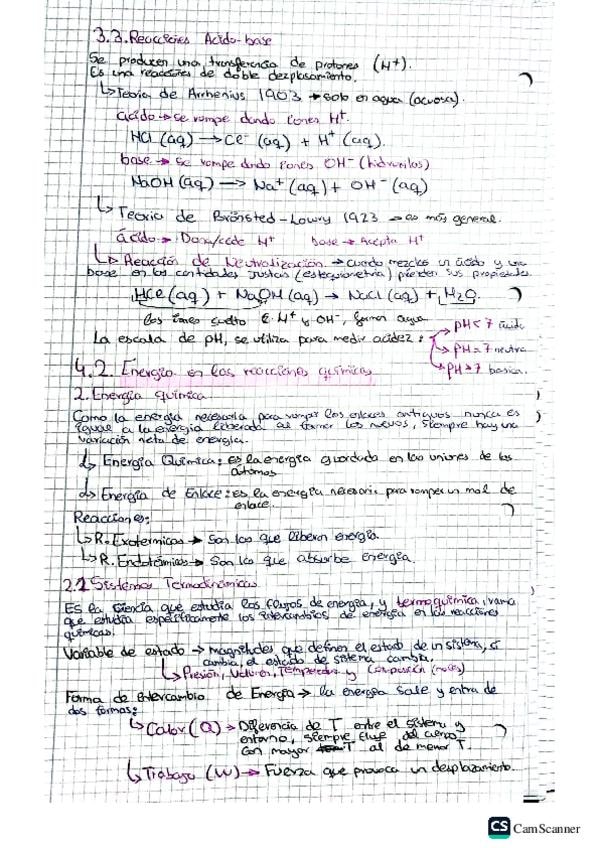 3.3. Reacciones Ácido-base
Se producen una transferencia de protones (H⁺).
Es una reacciones de doble dezplasamiento.
↳ Teoría de Arrhenius 1903 → solo en agua (acuosa).
ácido → se rompe dando Iones H⁺.
HCl (aq) → Cl⁻ (aq) + H⁺ (aq).
base → se rompe dando Iones OH⁻ (hidroxilos)
NaOH (aq) → Na⁺ (aq) + OH⁻ (aq)
↳ Teoría de Brönsted-Lowry 1923 → es más general.
ácido → Dona/cede H⁺ base → Acepta H⁺
↳ Reacción de Neutralización → cuando mezclas un ácido y una
base en las cantidades justas (estequiometría) pierden sus propiedades.
HCl (aq) + NaOH (aq) → NaCl (aq) + H₂O.
los iones H⁺ y OH⁻, forman agua
La escala de pH, se utiliza para medir acidez:
pH < 7 ácida
pH = 7 neutra
pH > 7 basica.
4.2. Energía en las reacciones químicas
2. Energía química
Como la energía necesaria para romper los enlaces antiguos nunca es
igual a la energía liberada al formar los nuevos, siempre hay una
variación neta de energía.
↳ Energía Química: es la energía guardada en las uniones de los
átomos
↳ Energía de Enlace: es la energía necesaria para romper un mol de
enlace.
Reacciones:
↳ R. Exotermicas → Son las que liberan energía.
↳ R. Endotérmicas → Son las que absorbe energía.
2.2 Sistemas Termodinámicos
Es la ciencia que estudia los flujos de energía, y termoquímica, rama
que estudia específicamente los intercambios de energía en las reacciones
químicas.
Variable de estado → magnitudes que definen el estado de un sistema, si
cambia, el estado de sistema cambia.
↳ Presión, Volumen, Temperatura y Composición (moles)
Forma de Intercambio de Energía → la energía sale y entra de
dos formas:
↳ Calor (Q) → Diferencia de T entre el sistema y
entorno, siempre fluye del cuerpo
con mayor T al de menor T.
↳ Trabajo (W) → Fuerza que provoca un desplazamiento.
CS CamScanner